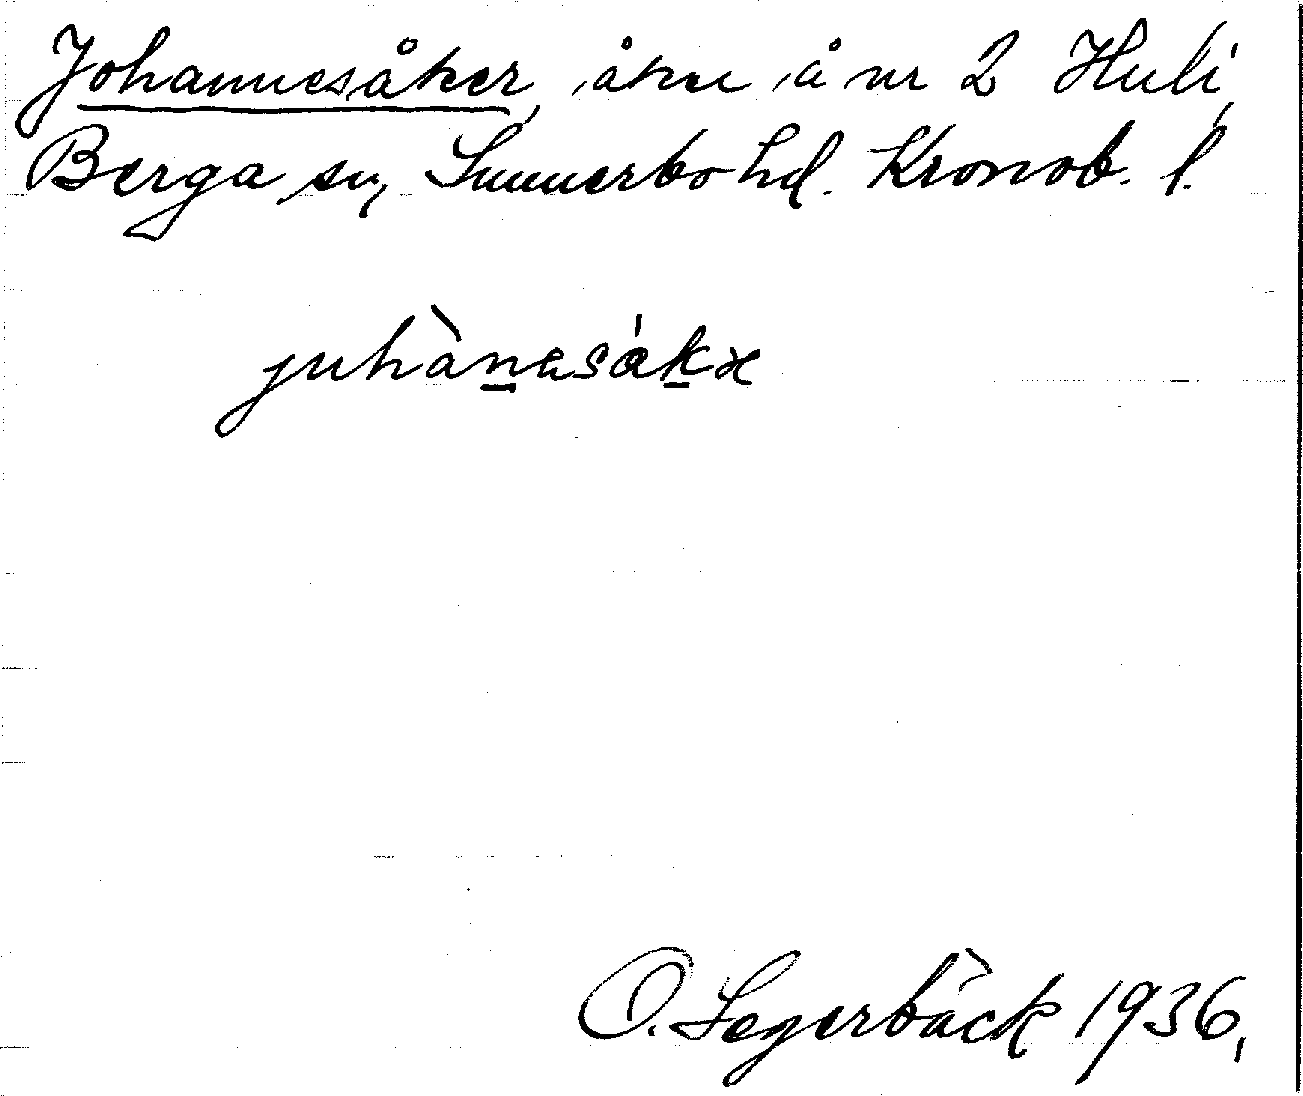 Johannesåker, åker å nr 2 Huli,
Berga sn, Sunnerbo hd. Kronob. l.
juhànasákx
O. Segerbäck 1936.